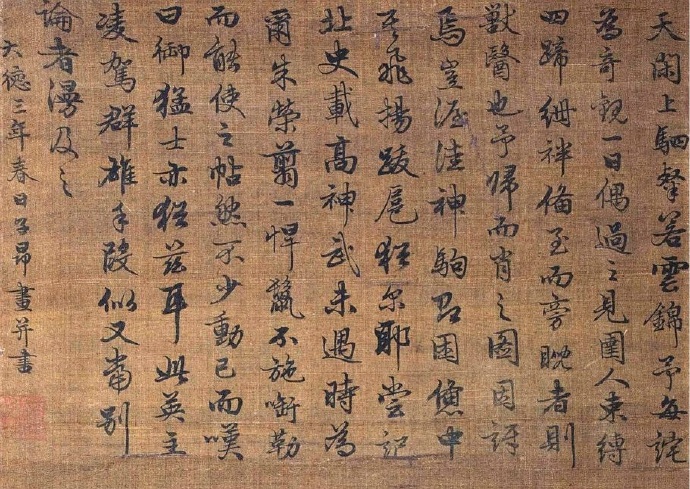 天閑上駟羣若雲錦予每詫
為奇觀一日偶過之見圉人束縛
四蹄紲袢俻至而旁睨者則
獸醫也予歸而肖之圖因訝
焉豈渥洼神駒亦困憊中
飛揚跋扈猶尔耶嘗記
北史載髙神武未遇時為
爾朱榮翦一悍鬣不施嚼勒
而能使之帖然不少動已而嘆
曰御猛士亦猶茲耳此英主
凌駕群雄手段似又當別
論者漫及之
大德三年春日子昂畫并書